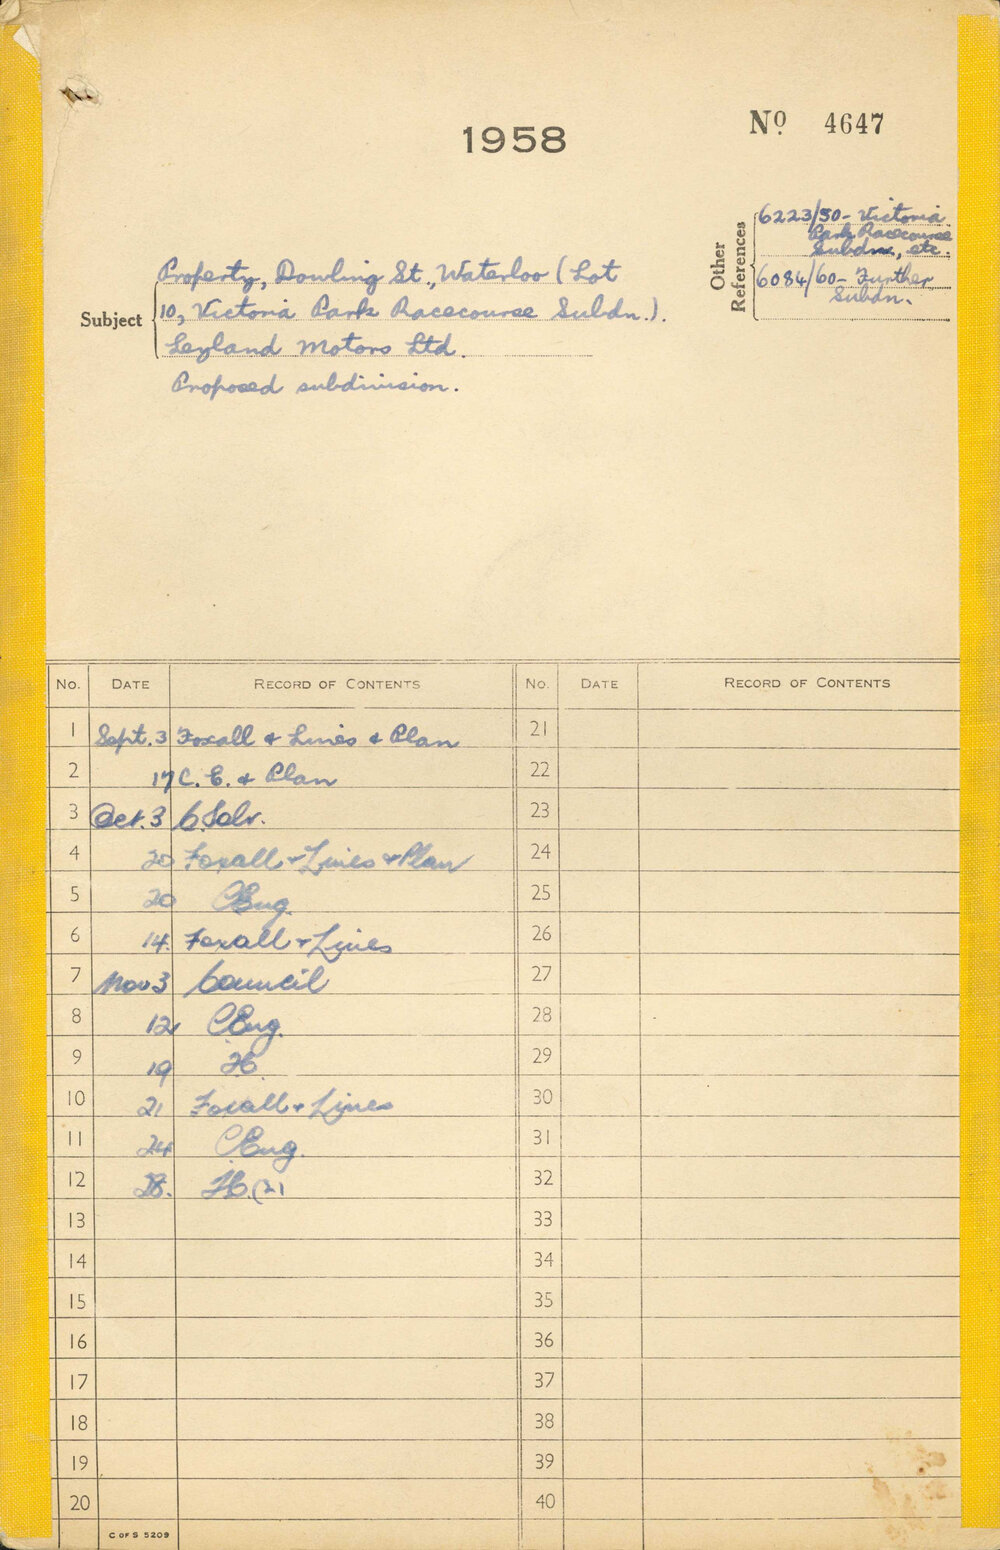 1958
No 4647
Other References
6223/50- Victoria
Park Racecourse
Subdn, etc.
6084/60- Further
Subdn.
Subject
Property, Dowling St., Waterloo (Lot
10, Victoria Park Racecourse Subdn.).
Leyland Motors Ltd.
Proposed subdivision.
No. DATE RECORD OF CONTENTS No. DATE RECORD OF CONTENTS
1 Sept. 3 Foxall & Lines & Plan 21
2 17 C. E. & Plan 22
3 Oct. 3 C. Solr. 23
4 20 Foxall & Lines & Plan 24
5 20 CEng. 25
6 14. Foxall & Lines 26
7 Nov 3 Council 27
8 12 CEng. 28
9 19 29
10 21 Foxall & Lines 30
11 24 CEng. 31
12 28. (2) 32
13 33
14 34
15 35
16 36
17 37
18 38
19 39
20 40
C OF S 5209